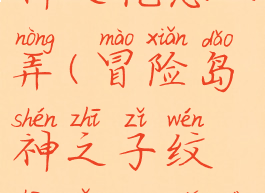 nòng mào xiǎn dǎo
弄（冒险岛
shén zhī zǐ wén
神之子纹